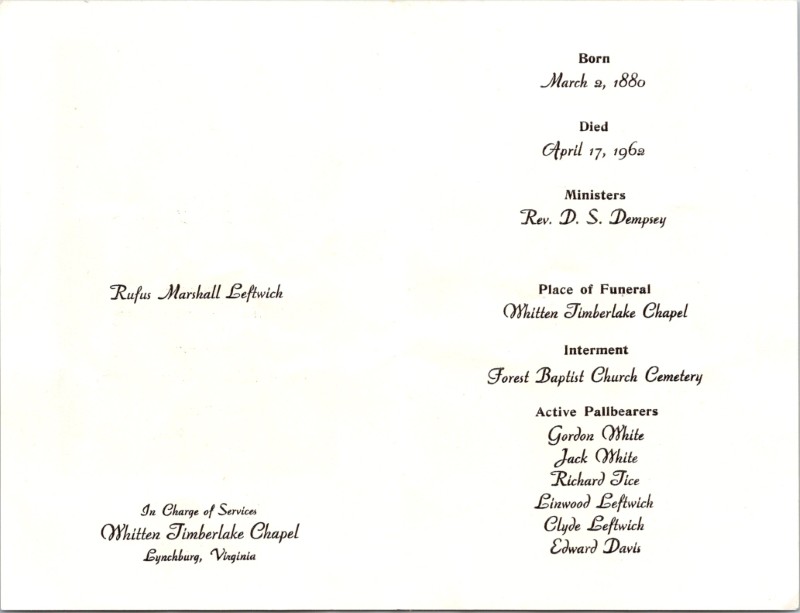 Rufus Marshall Leftwich
In Charge of Services
Whitten Timberlake Chapel
Lynchburg, Virginia
Born
March 2, 1880
Died
April 17, 1962
Ministers
Rev. D. S. Dempsey
Place of Funeral
Whitten Timberlake Chapel
Interment
Forest Baptist Church Cemetery
Active Pallbearers
Gordon White
Jack White
Richard Tice
Linwood Leftwich
Clyde Leftwich
Edward Davis